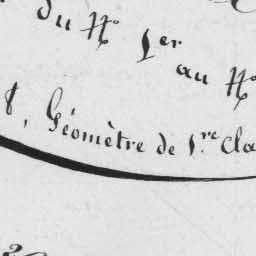 du N° 1er
au N°
Géomètre de 1.re Cla